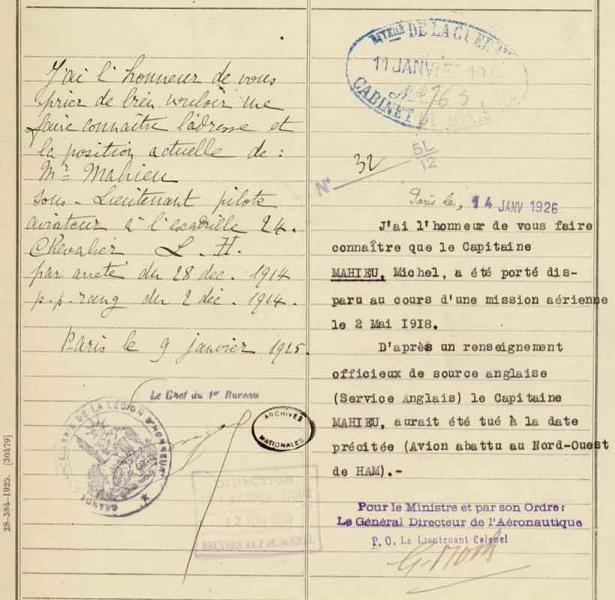 J'ai l'honneur de vous
prier de bien vouloir me
faire connaître l'adresse et
la position actuelle de :
Mr Mahieu
sous-Lieutenant pilote
aviateur à l'escadrille 24.
Chevalier L. H.
par arrêté du 28 dec. 1914
p.p. rang du 2 déc. 1914.
Paris le 9 janvier 1925.
Le Chef du 1er Bureau
DE LA LEGION D'HONNEUR
GRANDE
ARCHIVES
NATIONALES
DIRECTION
28-384-1925. [30479]
DE LA GUERRE
11 JANVIER
763
CABINET DU
32
5L
12
N°
Paris le, 14 JANV 1926
J'ai l'honneur de vous faire
connaître que le Capitaine
MAHIEU, Michel, a été porté dis-
paru au cours d'une mission aérienne
le 2 Mai I9I8.
D'après un renseignement
officieux de source anglaise
(Service Anglais) le Capitaine
MAHIEU, aurait été tué à la date
précitée (Avion abattu au Nord-Ouest
de HAM).-
Pour le Ministre et par son Ordre:
Le Général Directeur de l'Aéronautique
P. O. Le Lieutenant Colonel